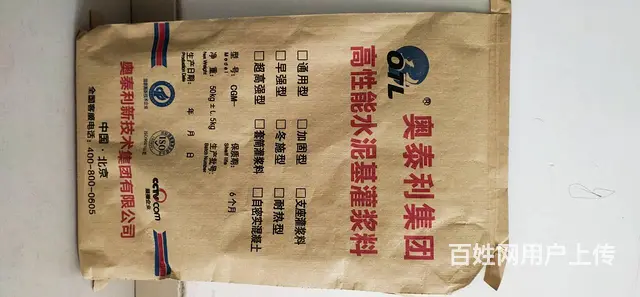 OTL
®
奥泰利集团
高性能水泥基灌浆料
□通用型 □加固型 □支座灌浆料
□早强型 □冬施型 □耐热型
□超高强型 □套筒灌浆料 □自密实混凝土
型号: CGM- 保质期: 6个月
Model Shelf life
净重: 50kg±1.5kg 生产批号:
Net Weight Batch Number
生产日期: 年 月 日
Production Date
ISO
cctv.com
奥泰利新技术集团有限公司
中国·北京
全国客服电话:400-800-0605
百姓网用户上传